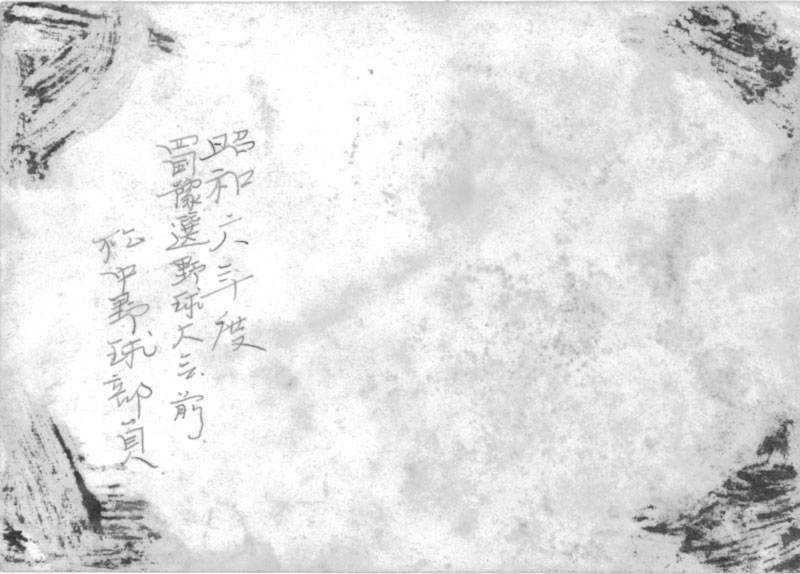 昭和六年度
全豫選野球大会前
松中野球部員